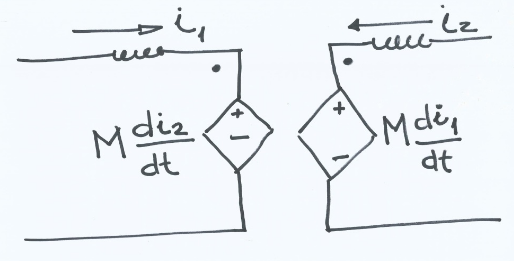 i₁
i₂
+
−
M di₂/dt
+
−
M di₁/dt